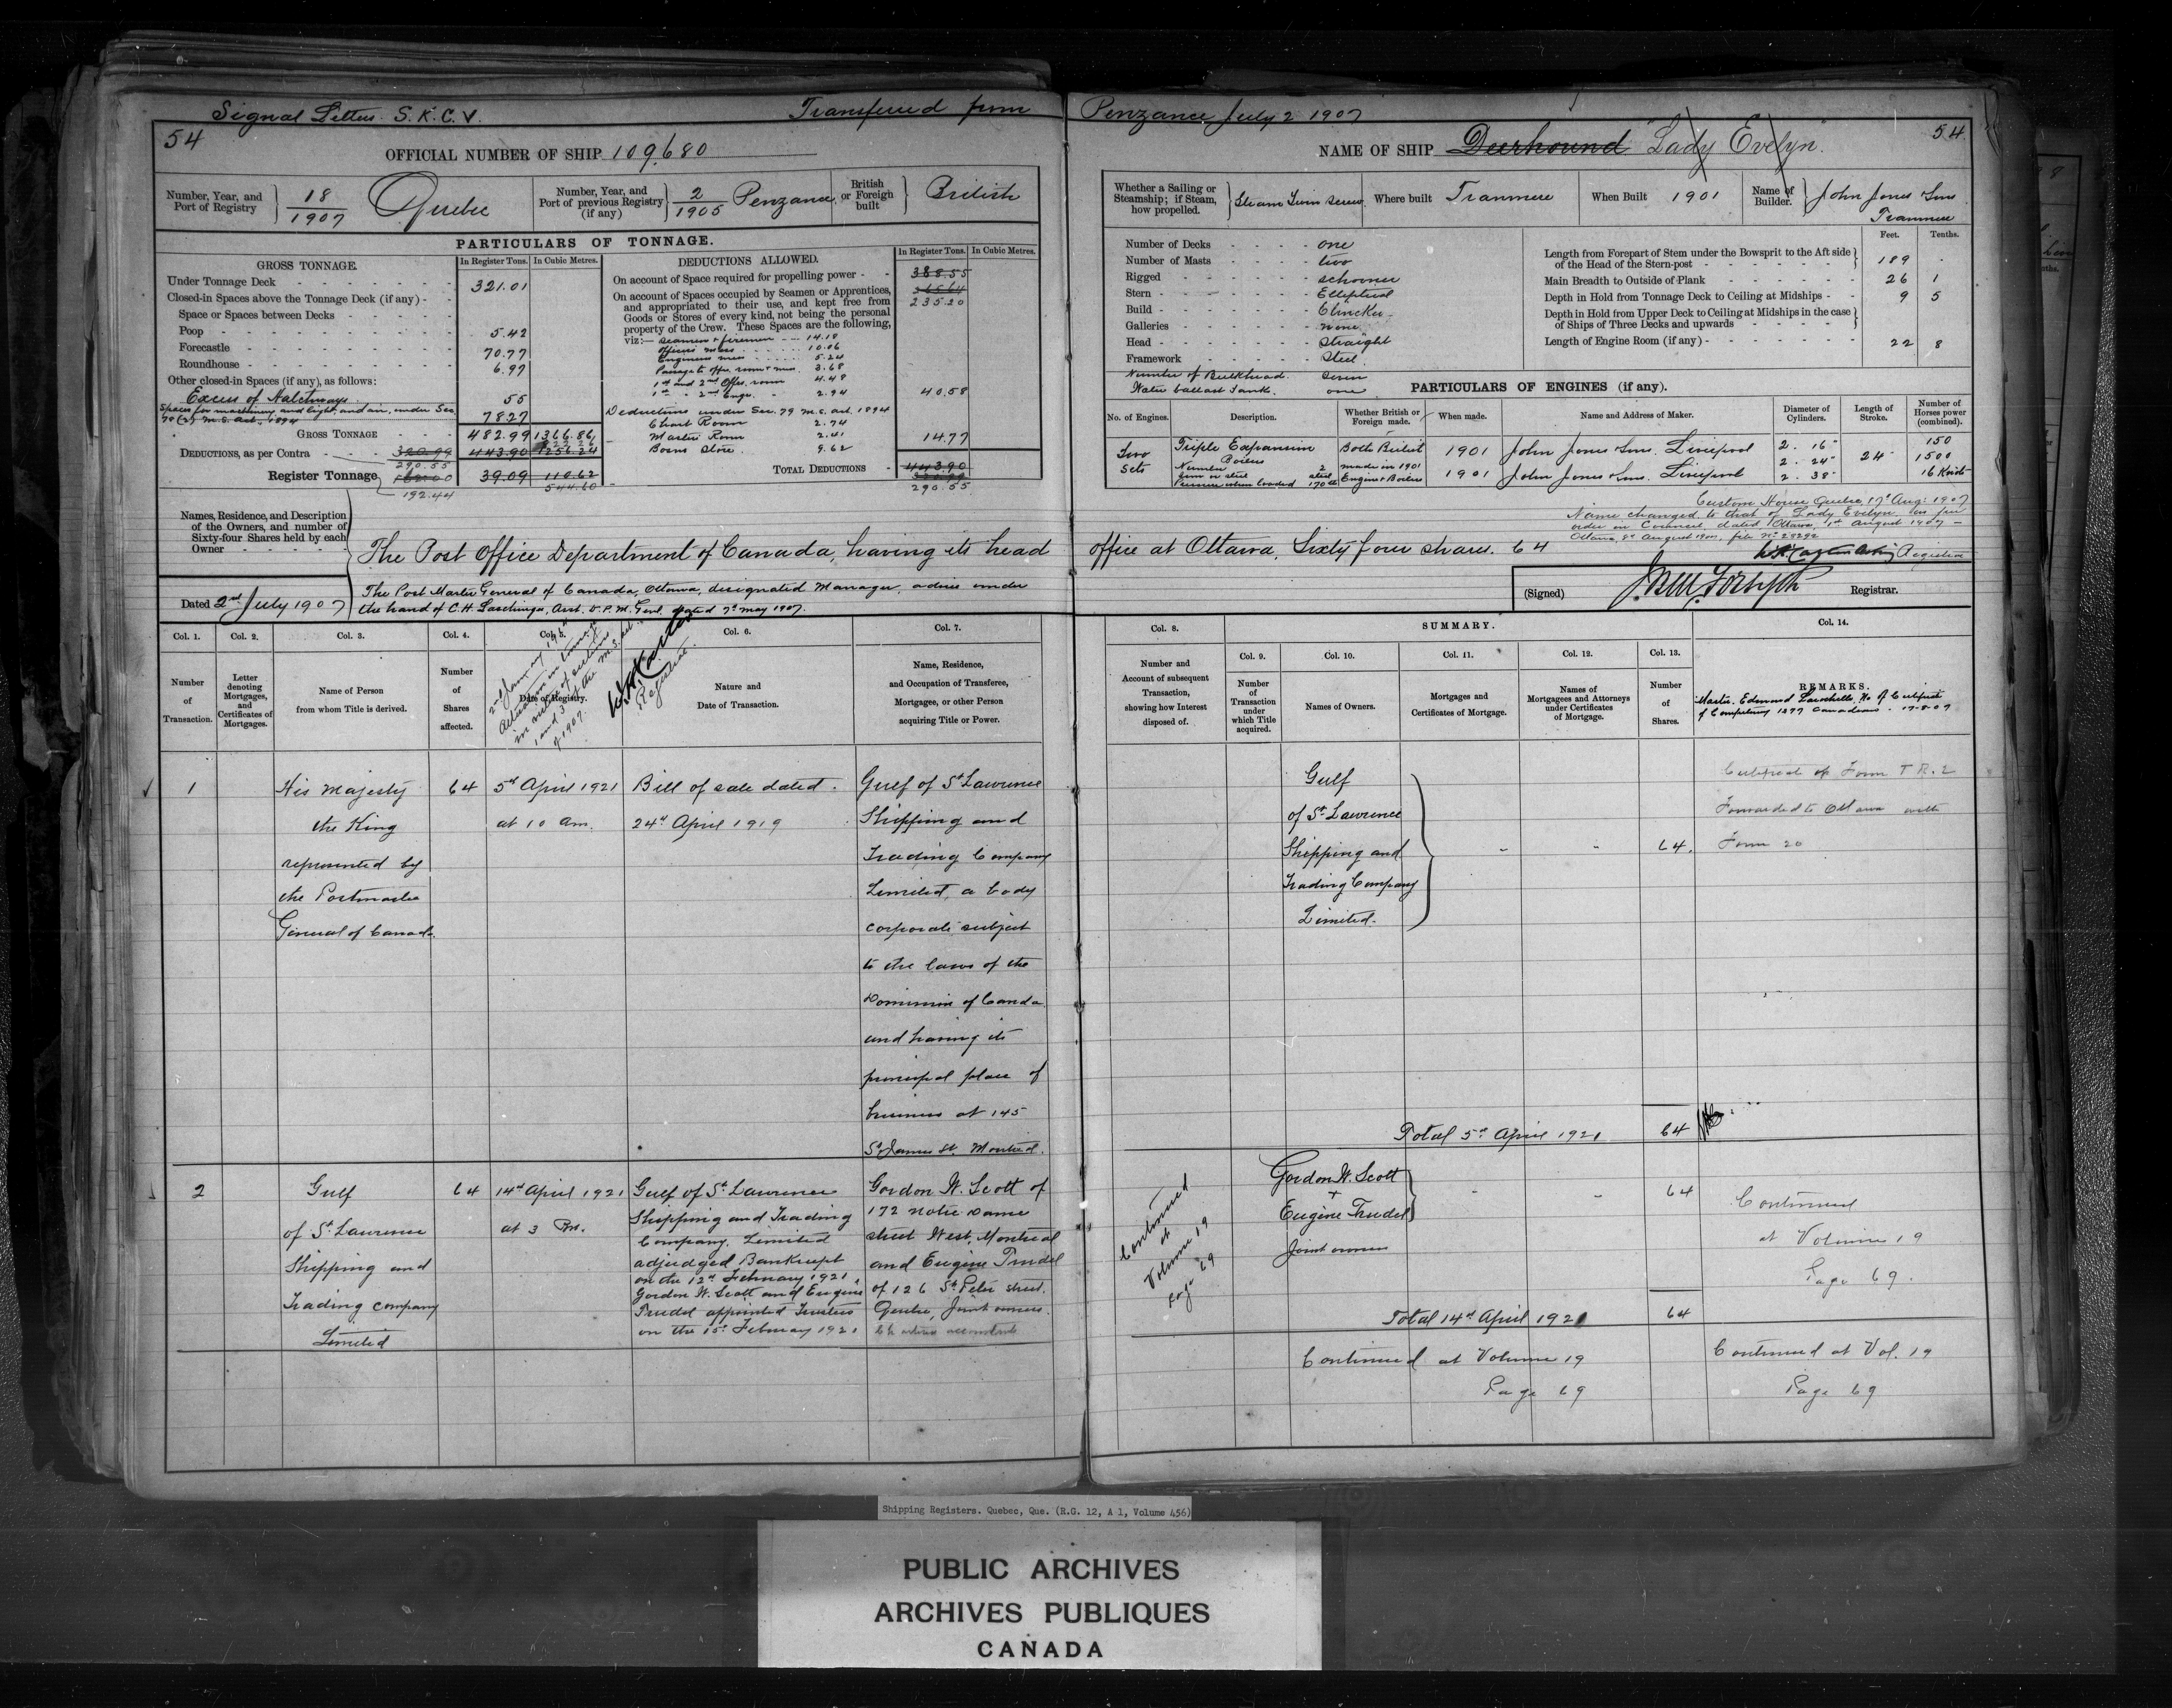 Signal Letters S.K.C.V. Transferred from Penzance July 2 1907
54
OFFICIAL NUMBER OF SHIP 109,680
NAME OF SHIP Deerhound "Lady Evelyn"
54
Number, Year, and Port of Registry 18/1907 Quebec
Number, Year, and Port of previous Registry (if any) 2/1905 Penzance
British or Foreign built British
Whether a Sailing or Steamship; if Steam, how propelled. Steam Twin Screw
Where built Tranmere
When Built 1901
Name of Builder. John Jones & Sons Tranmere
PARTICULARS OF TONNAGE.
GROSS TONNAGE.
In Register Tons. In Cubic Metres.
Under Tonnage Deck 321.01
Closed-in Spaces above the Tonnage Deck (if any)
Space or Spaces between Decks
Poop 5.42
Forecastle 70.77
Roundhouse 6.97
Other closed-in Spaces (if any), as follows:
Excess of Hatchways 55
Spaces for machinery and light, and air, under Sec. 78(2) M.S. Act. 1894 78.27
GROSS TONNAGE 482.99 1366.86
DEDUCTIONS, as per Contra 320.99 290.55 443.90 1256.24
Register Tonnage 162.00 192.44 39.09 110.62 544.60
DEDUCTIONS ALLOWED.
In Register Tons. In Cubic Metres.
On account of Space required for propelling power 388.55
265.64
235.20
On account of Spaces occupied by Seamen or Apprentices, and appropriated to their use, and kept free from Goods or Stores of every kind, not being the personal property of the Crew. These Spaces are the following, viz:—
Seamen & firemen 14.18
Officers mess 10.06
Engineers mess 5.24
Passage to offrs. room & mess. 3.68
1st and 2nd Offrs. room 4.48
1st " 2nd Engr. " 2.94
40.58
Deductions under Sec. 79 M.S. act. 1894
Chart Room 2.74
Masters Room 2.41
Bosns Store 9.62
14.77
TOTAL DEDUCTIONS 443.90
320.99
290.55
Number of Decks one
Number of Masts two
Rigged schooner
Stern Elliptical
Build Clincher
Galleries none
Head straight
Framework Steel
Number of Bulkhead. seven
Water ballast Tanks. one
Feet. Tenths.
Length from Forepart of Stem under the Bowsprit to the Aft side of the Head of the Stern-post 189 -
Main Breadth to Outside of Plank 26 1
Depth in Hold from Tonnage Deck to Ceiling at Midships 9 5
Depth in Hold from Upper Deck to Ceiling at Midships in the case of Ships of Three Decks and upwards
Length of Engine Room (if any) 22 8
PARTICULARS OF ENGINES (if any).
No. of Engines. Description. Whether British or Foreign made. When made. Name and Address of Maker. Diameter of Cylinders. Length of Stroke. Number of Horses power (combined).
Two Sets Triple Expansion Both British 1901 John Jones & Sons. Liverpool 2. 16" 2. 24" 2. 38" 24" 150 1500 16 Knots
Boilers
Number 2 made in 1901
Iron or steel steel Engines & Boilers 1901 John Jones & Sons. Liverpool
Pressure when loaded 170 lb
Custom House Quebec 17th Aug: 1907
Name changed to that of Lady Evelyn as per
order in Council, dated Ottawa, 1st August 1907 —
Registrar
Names, Residence, and Description of the Owners, and number of Sixty-four Shares held by each Owner
The Post Office Department of Canada, having its head office at Ottawa, Sixty four shares. 64
Dated 2nd July 1907
The Post Master General of Canada, Ottawa, designated Manager, advice under
the hand of C.H. Laschinger, Asst. D.P.M. Genl. dated 7th May 1907.
(Signed) J.Bell Forsyth Registrar.
Col. 1. Col. 2. Col. 3. Col. 4. Col. 5. Col. 6. Col. 7. Col. 8. SUMMARY. Col. 14.
Col. 9. Col. 10. Col. 11. Col. 12. Col. 13.
Number of Transaction.
Letter denoting Mortgages, and Certificates of Mortgages.
Name of Person from whom Title is derived.
Number of Shares affected.
Date of Registry.
in
1 and 3 of the M.S. act.
of 1907.
Registrar.
Nature and Date of Transaction.
Name, Residence, and Occupation of Transferee, Mortgagee, or other Person acquiring Title or Power.
Number and Account of subsequent Transaction, showing how Interest disposed of.
Number of Transaction under which Title acquired.
Names of Owners.
Mortgages and Certificates of Mortgage.
Names of Mortgagees and Attorneys under Certificates of Mortgage.
Number of Shares.
REMARKS.
Master. Edmund Larochelle. No. of Certificate
of Competency 1297 Canadian. 17-8-07
1
His Majesty
the King
represented by
the Postmaster
General of Canada.
64
5th April 1921
at 10 am.
Bill of sale dated.
24th April 1919
Gulf of St Lawrence
Shipping and
Trading Company
Limited, a body
corporate subject
to the laws of the
Dominion of Canda
and having its
principal place of
business at 145
St James St. Montreal.
Gulf
of St Lawrence
Shipping and
Trading Company
Limited.
64.
Certificate of Form T R. 2
Forwarded to Ottawa with
Form 20
Total 5th April 1921 64
2
Gulf
of St Lawrence
Shipping and
Trading Company
Limited
64
14th April 1921
at 3 Pm.
Gulf of St Lawrence
Shipping and Trading
Company, Limited
adjudged Bankrupt
on the 12th February 1921.
Gordon W. Scott and Eugène
Trudel appointed Trustees
on the 15th February 1921
Gordon W. Scott of
172 Notre Dame
street West, Montreal
and Eugène Trudel
of 126 St Peter street.
Quebec, Joint owners.
Chartered accountants
Continued
at
Volume 19
page 69
Gordon W. Scott
+
Eugène Trudel
Joint owners
64
Continued
at Volume 19
Page 69.
Total 14th April 1921 64
Continued at Volume 19
Page 69
Continued at Vol. 19
Page 69
Shipping Registers. Quebec, Que. (R.G. 12, A 1, Volume 456)
PUBLIC ARCHIVES
ARCHIVES PUBLIQUES
CANADA